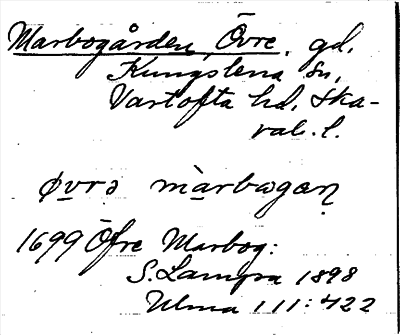 Marbogården, Övre, gd,
Kungslena sn,
Vartofta hd, Ska-
rab. l.
øvrə màrbogaṇ
1699 Öfre Marbog:
S. Lampa 1898
Ulma 111:422